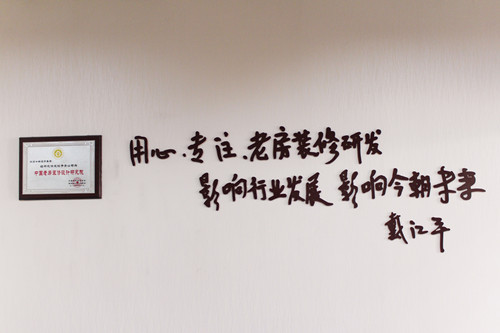 中国老房装饰设计研究院
用心、专注、老房装修研发
影响行业发展 影响今朝未来
戴江平